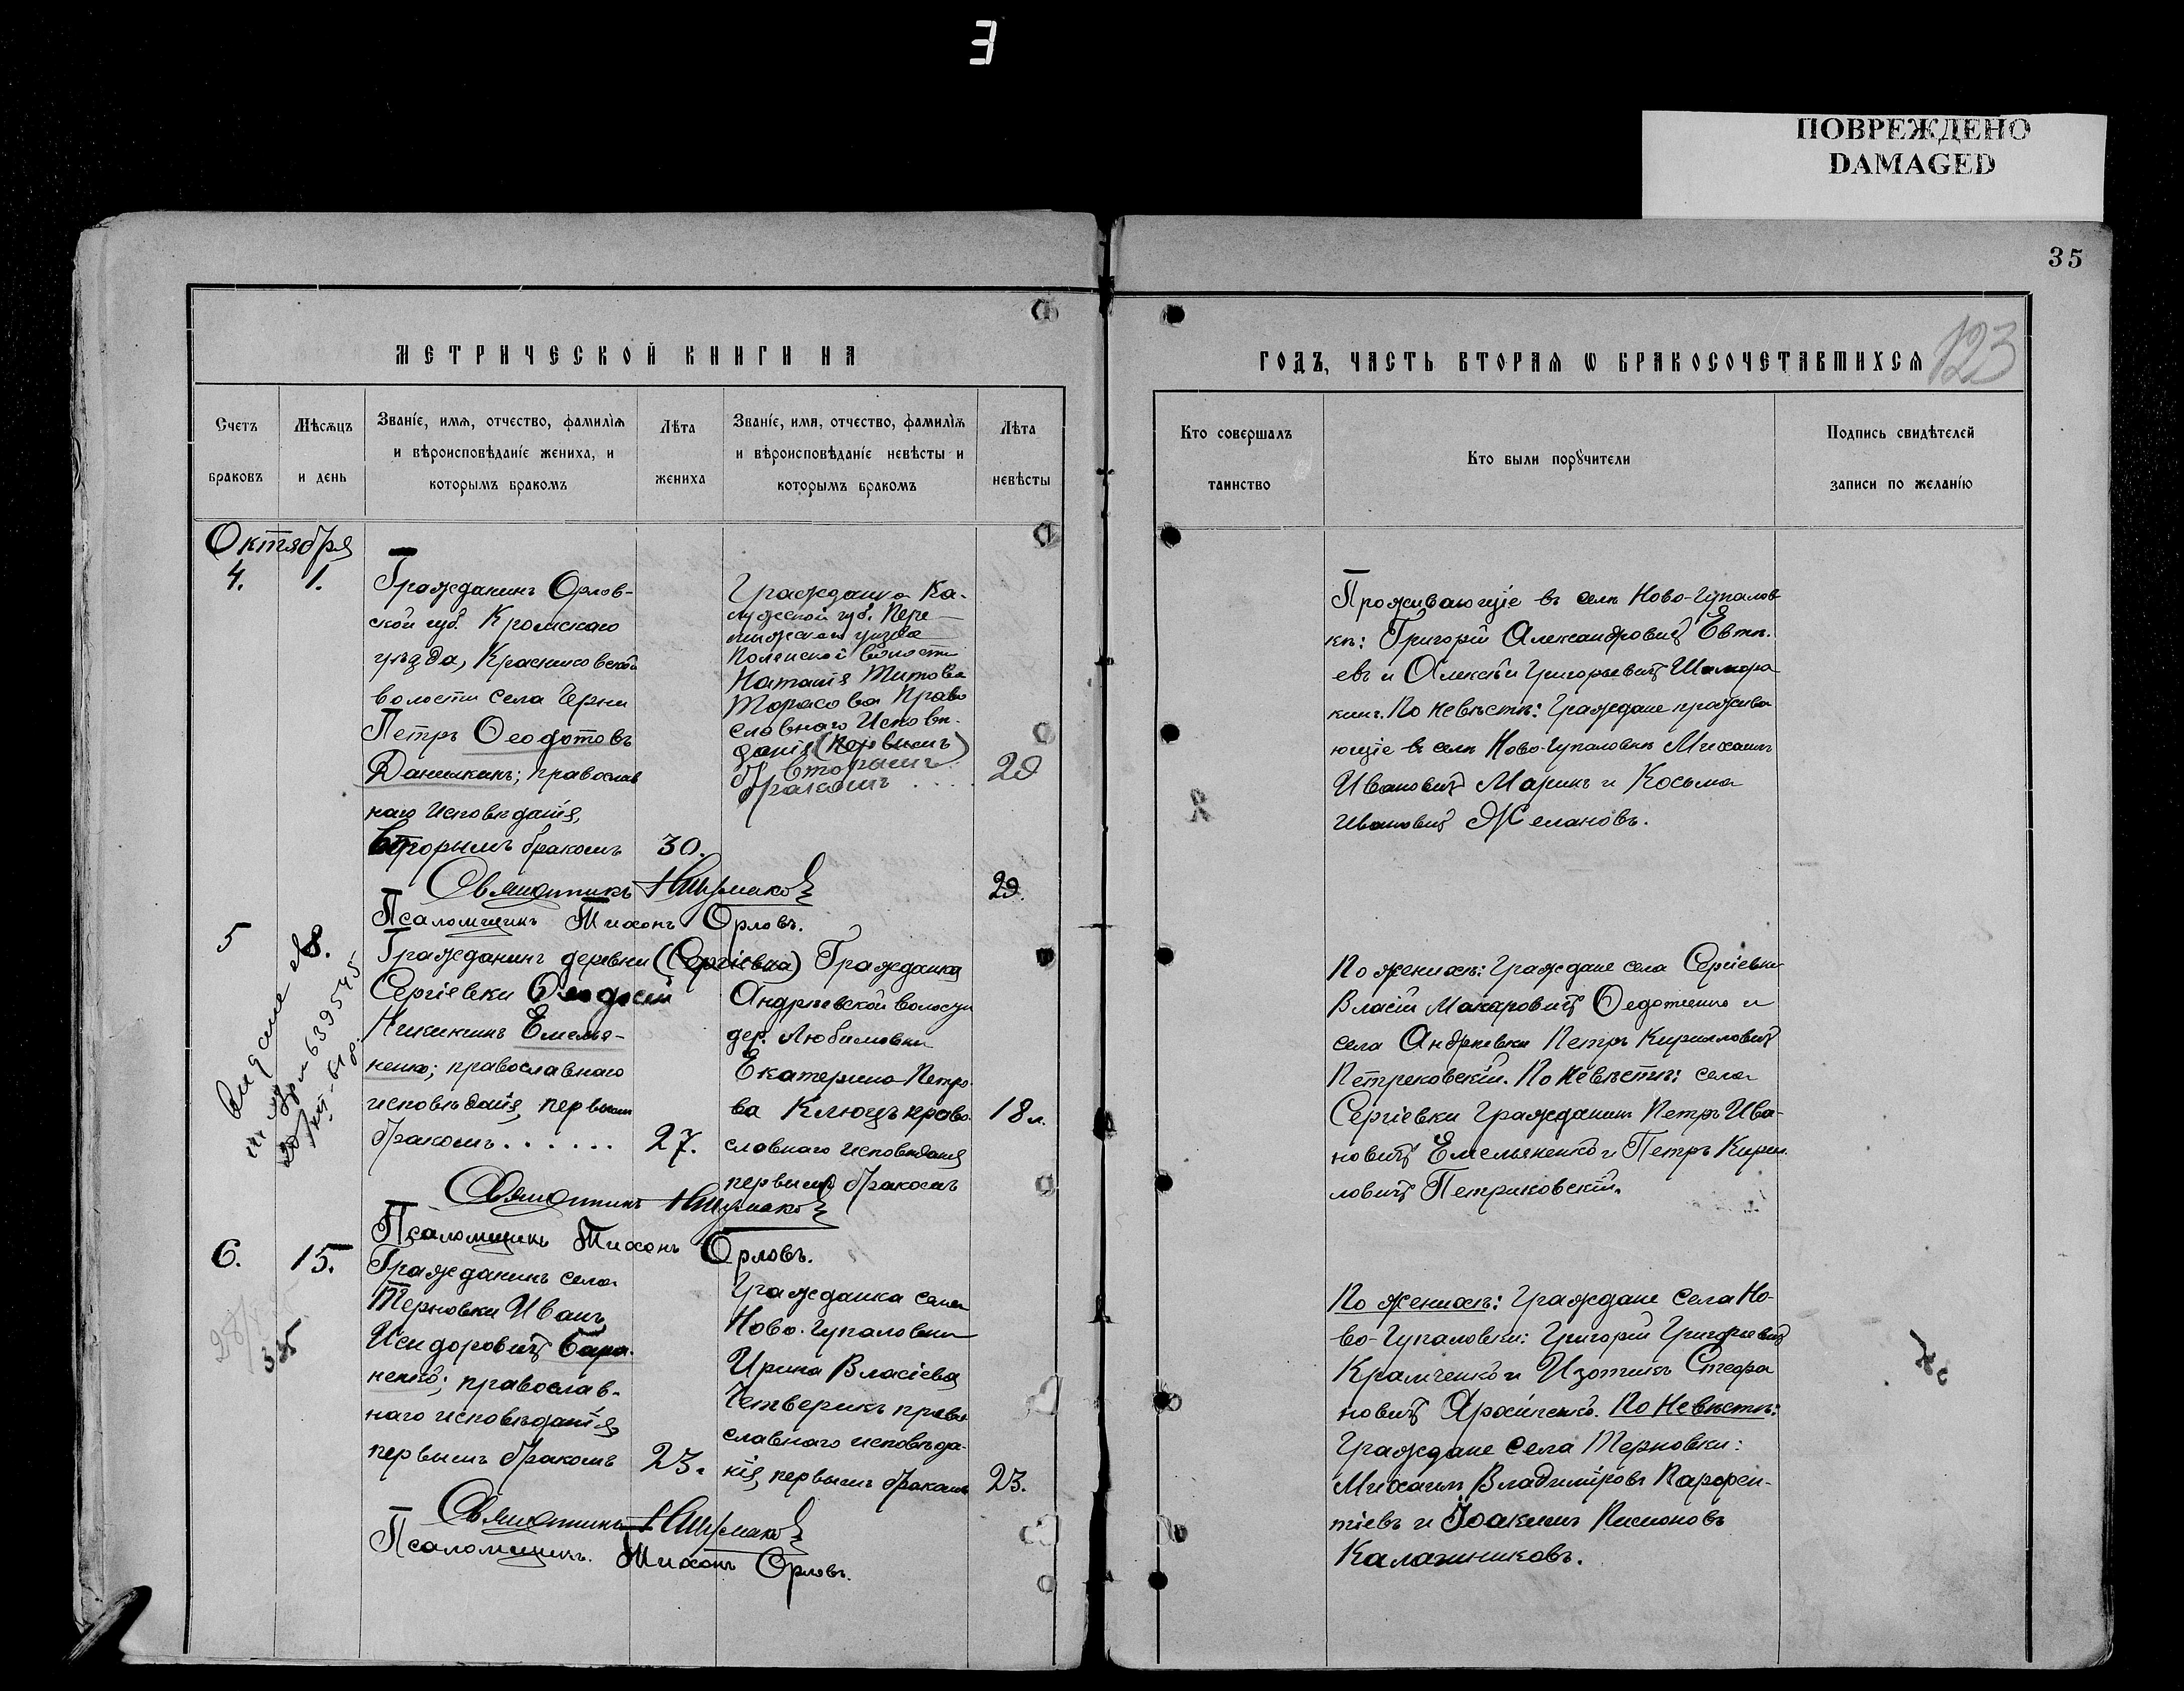 E
ПОВРЕЖДЕНО
DAMAGED
35
123
МЕТРИЧЕСКОЙ КНИГИ НА
ГОДЪ, ЧАСТЬ ВТОРАЯ Ѡ БРАКОСОЧЕТАВШИХСЯ
Счетъ браковъ
Мѣсяцъ и день
Званіе, имя, отчество, фамилія
и вѣроисповѣданіе жениха, и
которымъ бракомъ
Лѣта жениха
Званіе, имя, отчество, фамилія
и вѣроисповѣданіе невѣсты и
которымъ бракомъ
Лѣта невѣсты
Кто совершалъ таинство
Кто были поручители
Подпись свидѣтелей записи по желанію
Октября
4. 1.
Гражданинъ Орлов-
ской губ. Кромскаго
уѣзда,
волости села Черни
Петръ Ѳеодотовъ
Данишкинъ; православ
наго исповѣданія,
вторымъ бракомъ 30.
Гражданка Ка-
лужской губ. Пере-
мышльскаго уѣзда
волости
Наталія Титова
Тарасова право
славнаго исповѣ-
данія (первымъ)
вторымъ
бракомъ . . . . 29
29.
Священникъ
Псаломщикъ Тихонъ Орловъ.
Проживающіе въ селѣ Ново-Гупалов
кѣ: Григорій Александровичъ Евтѣ-
евъ и Алексѣй Григорьевичъ Шамора
кинъ. По невѣстѣ: Граждане прожива
ющіе въ селѣ Ново-Гупаловкѣ Михаилъ
Ивановичъ Маринъ и Косьма
Ивановичъ Желановъ.
5 8.
Гражданинъ деревни (Сергіевка)
Сергіевки Ѳеодосій
Никикинъ Емелья-
ненко; православнаго
исповѣданія, первымъ
бракомъ . . . . . . 27.
Гражданка
Андреевской волости
дер. Любимовки
Екатерина Петро
ва Клюцъ право-
славнаго исповѣданія
первымъ бракомъ
18 л.
Священникъ
Псаломщикъ Тихонъ Орловъ.
По женихѣ: Граждане села Сергіевки
Власій Макаровичъ Ѳедотченко и
села Андреевки Петръ Кирилловичъ
Петрековскій. По невѣстѣ: села
Сергіевки Гражданинъ Петръ Ива-
новичъ Емельяненко и Петръ Кири-
ловичъ Петриковскій.
6. 15.
Гражданинъ села
Терновки Иванъ
Исидоровичъ Бара-
ненко; православ-
наго исповѣданія
первымъ бракомъ 23.
Гражданка села
Ново-Гупаловки
Ирина Власіева
Четверикъ право
славнаго исповѣда-
нія, первымъ бракомъ 23.
Священникъ
Псаломщикъ. Тихонъ Орловъ.
По женихѣ: Граждане села Но-
во-Гупаловки: Григорій Григорьевичъ
Крамченко и Изотикъ Стефа
новичъ Архипенко. По невѣстѣ:
Граждане села Терновки:
Михаилъ Владиміровъ Парфен-
тіевъ и Іоакимъ Пимоновъ
Калашниковъ.